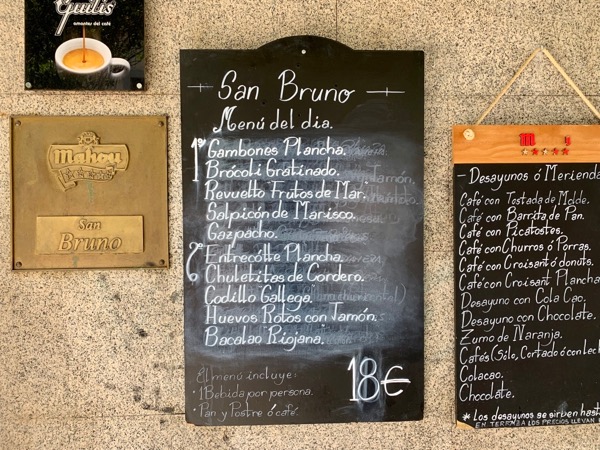 Guilis
amantes del café
Mahou
San
Bruno
San Bruno
Menú del día.
1º
Gambones Plancha.
Brócoli Gratinado.
Revuelto Frutos de Mar.
Salpicón de Marisco.
Gazpacho.
2º
Entrecôtte Plancha.
Chuletitas de Cordero.
Codillo Gallega.
Huevos Rotos con Jamón.
Bacalao Riojana.
El menú incluye:
· 1 Bebida por persona.
· Pan y Postre ó café.
18€
- Desayunos ó Merienda
Café con Tostada de Molde.
Café con Barrita de Pan.
Café con Picatostes.
Café con Churros ó Porras.
Café con Croisant ó donuts.
Café con Croisant Plancha
Desayuno con Cola Cao.
Desayuno con Chocolate.
Zumo de Naranja.
Cafés (Sólo, Cortado ó con lech
Colacao.
Chocolate.
* Los desayunos se sirven hast
EN TERRAZA LOS PRECIOS LLEVAN